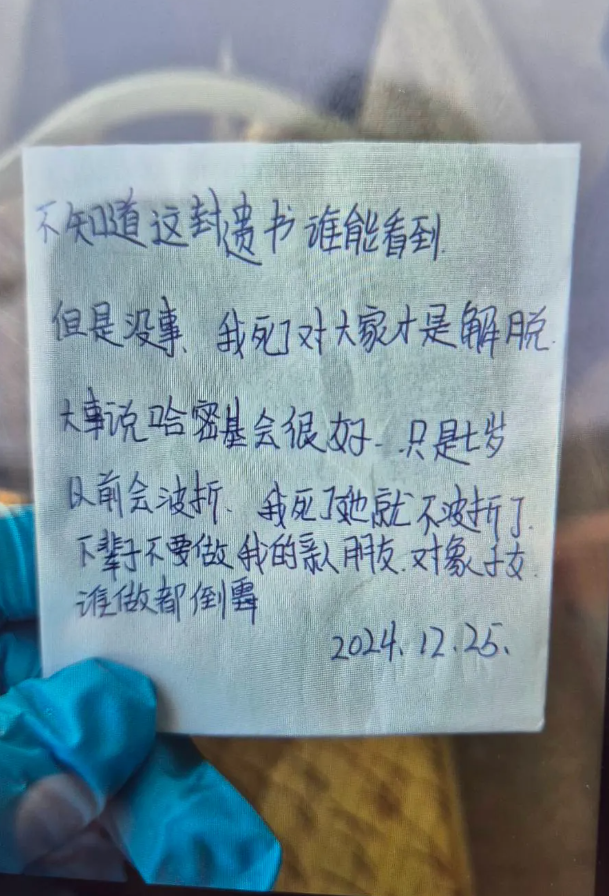 不知道这封遗书谁能看到.
但是没事、我死了对大家才是解脱.
大事说哈密基会很好、只是七岁
以前会波折、我死了她就不波折了.
下辈子不要做我的亲人朋友.对象子女.
谁做都倒霉
2024.12.25.